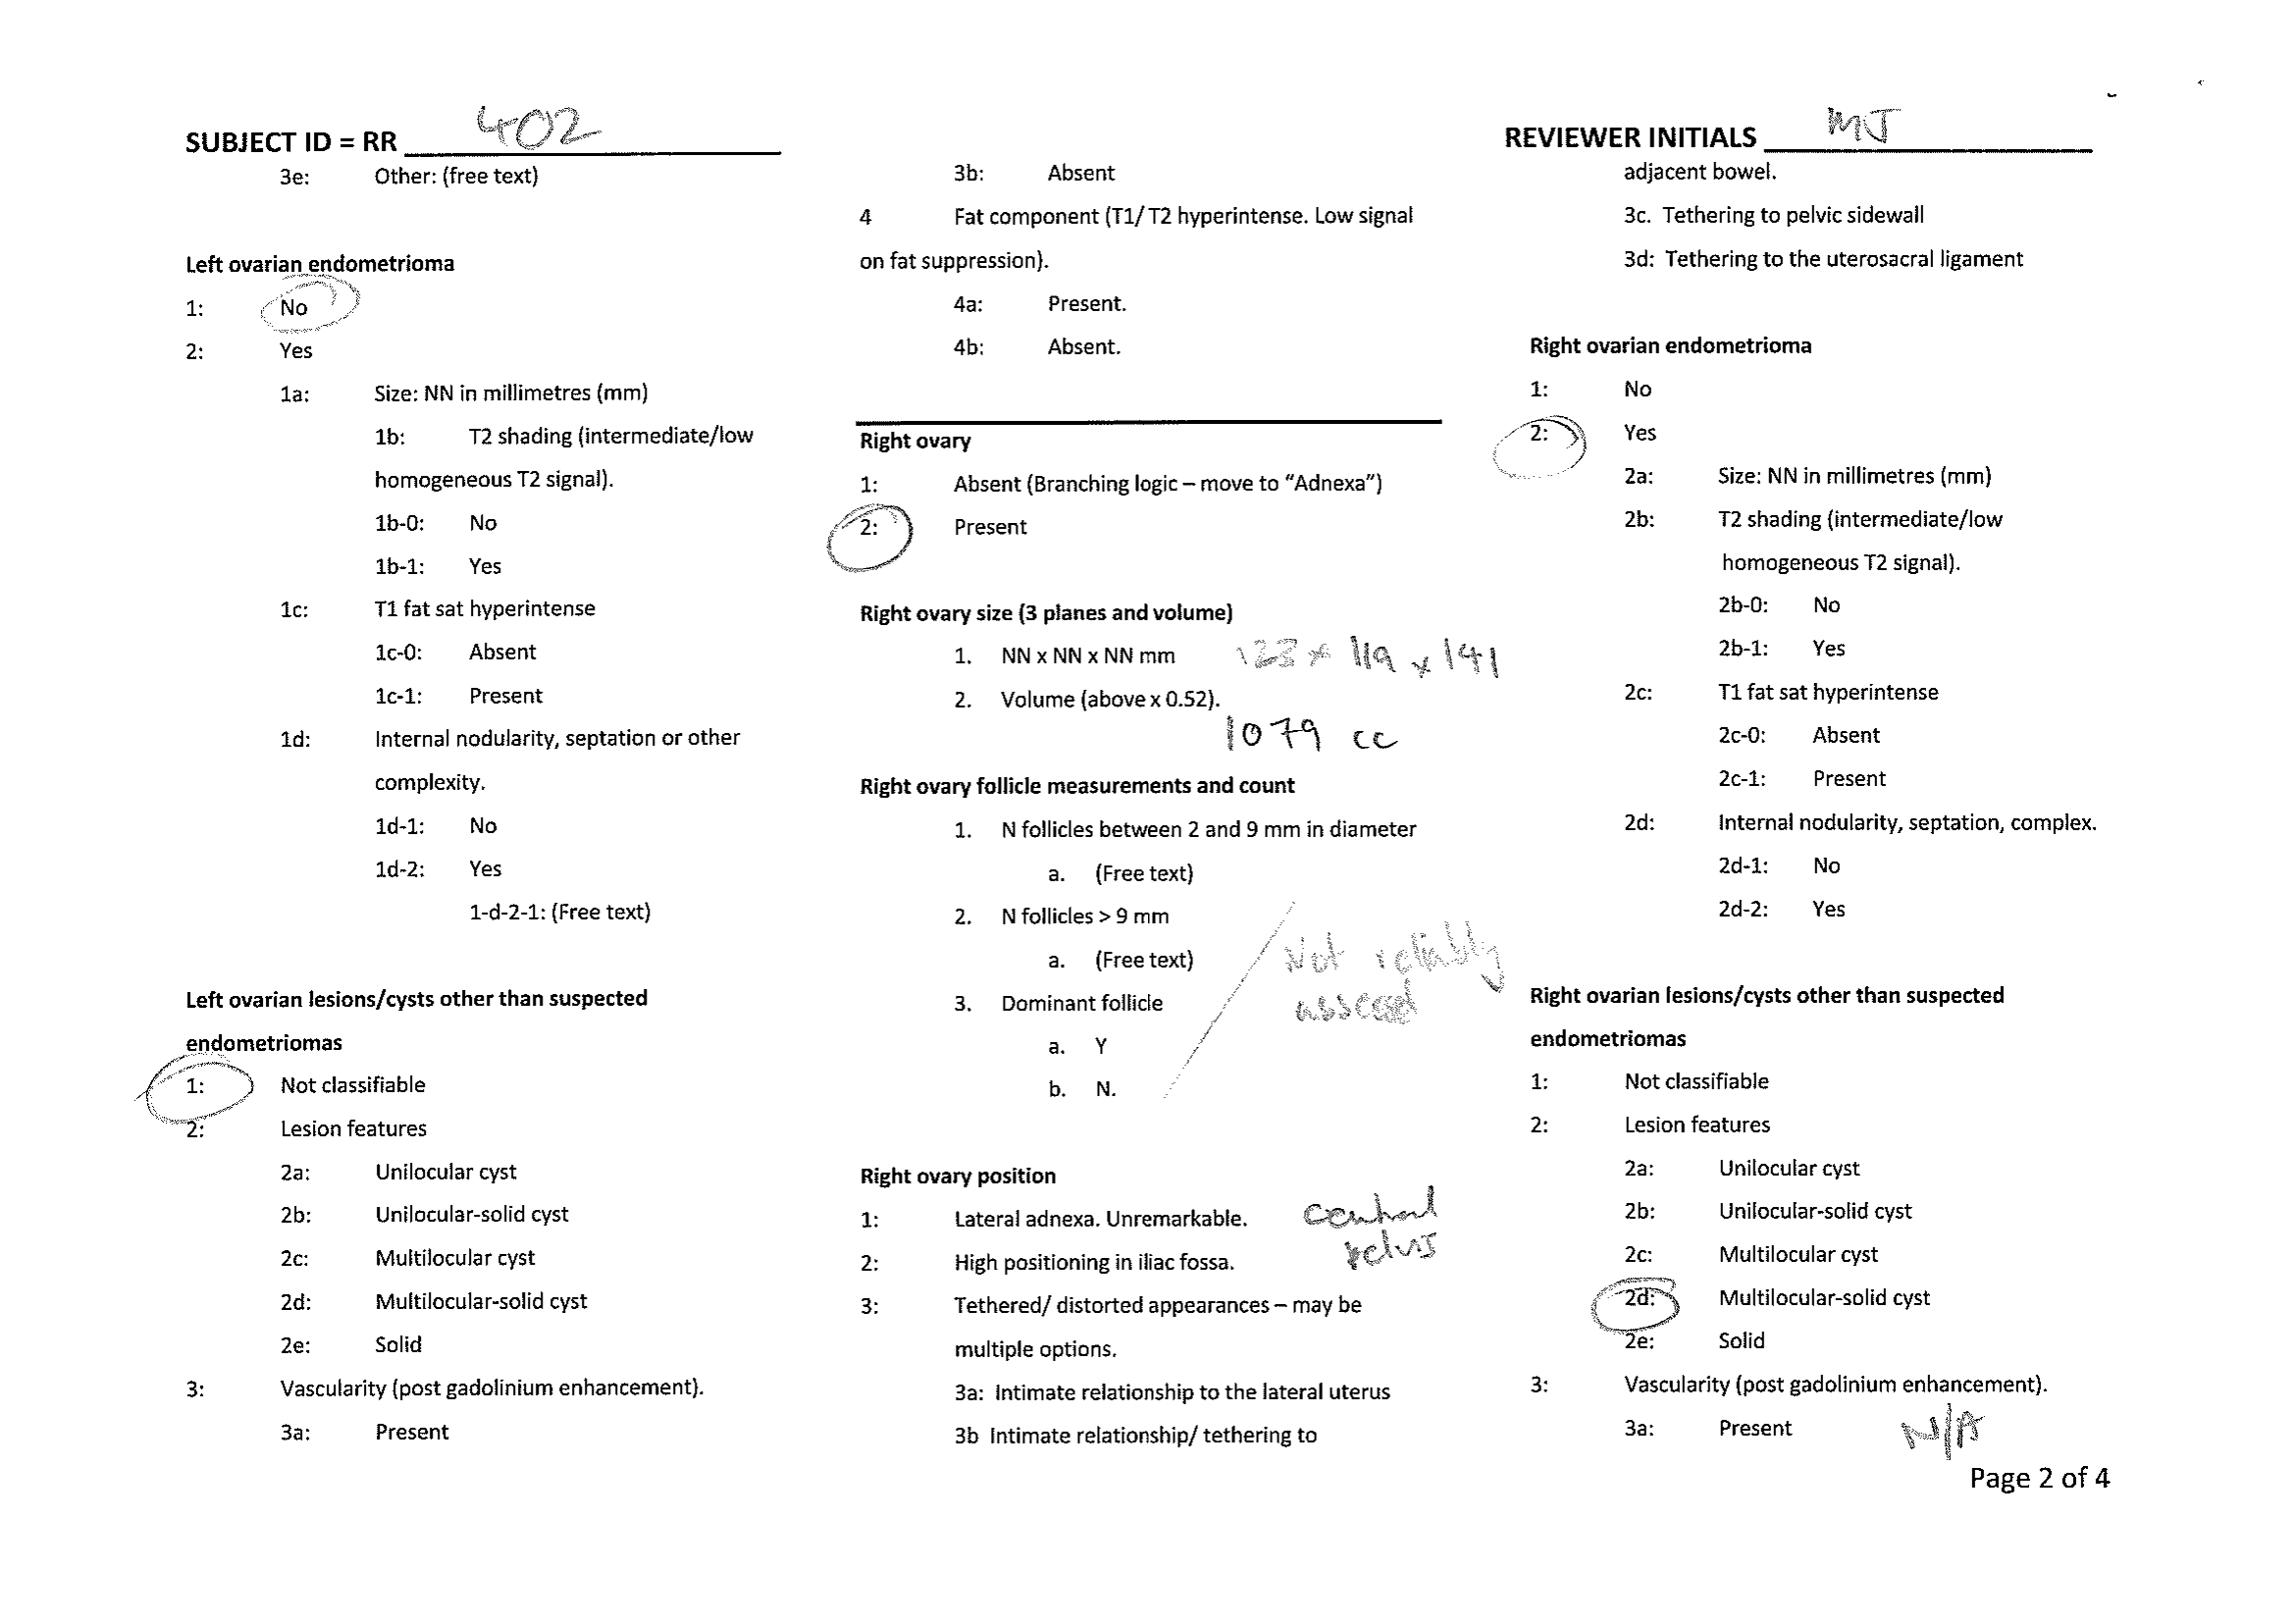 SUBJECT ID = RR 402
3e: Other: (free text)
Left ovarian endometrioma
1: No
2: Yes
1a: Size: NN in millimetres (mm)
1b: T2 shading (intermediate/low
homogeneous T2 signal).
1b-0: No
1b-1: Yes
1c: T1 fat sat hyperintense
1c-0: Absent
1c-1: Present
1d: Internal nodularity, septation or other
complexity.
1d-1: No
1d-2: Yes
1-d-2-1: (Free text)
Left ovarian lesions/cysts other than suspected
endometriomas
1: Not classifiable
2: Lesion features
2a: Unilocular cyst
2b: Unilocular-solid cyst
2c: Multilocular cyst
2d: Multilocular-solid cyst
2e: Solid
3: Vascularity (post gadolinium enhancement).
3a: Present
3b: Absent
4 Fat component (T1/ T2 hyperintense. Low signal
on fat suppression).
4a: Present.
4b: Absent.
Right ovary
1: Absent (Branching logic – move to “Adnexa”)
2: Present
Right ovary size (3 planes and volume)
1. NN x NN x NN mm 123 x 119 x 141
2. Volume (above x 0.52).
1079 cc
Right ovary follicle measurements and count
1. N follicles between 2 and 9 mm in diameter
a. (Free text)
2. N follicles > 9 mm
a. (Free text)
3. Dominant follicle
a. Y
b. N.
Not reliably
assessed
Right ovary position
1: Lateral adnexa. Unremarkable. central
2: High positioning in iliac fossa. pelvis
3: Tethered/ distorted appearances – may be
multiple options.
3a: Intimate relationship to the lateral uterus
3b Intimate relationship/ tethering to
REVIEWER INITIALS MJ
adjacent bowel.
3c. Tethering to pelvic sidewall
3d: Tethering to the uterosacral ligament
Right ovarian endometrioma
1: No
2: Yes
2a: Size: NN in millimetres (mm)
2b: T2 shading (intermediate/low
homogeneous T2 signal).
2b-0: No
2b-1: Yes
2c: T1 fat sat hyperintense
2c-0: Absent
2c-1: Present
2d: Internal nodularity, septation, complex.
2d-1: No
2d-2: Yes
Right ovarian lesions/cysts other than suspected
endometriomas
1: Not classifiable
2: Lesion features
2a: Unilocular cyst
2b: Unilocular-solid cyst
2c: Multilocular cyst
2d: Multilocular-solid cyst
2e: Solid
3: Vascularity (post gadolinium enhancement).
3a: Present N/A
Page 2 of 4